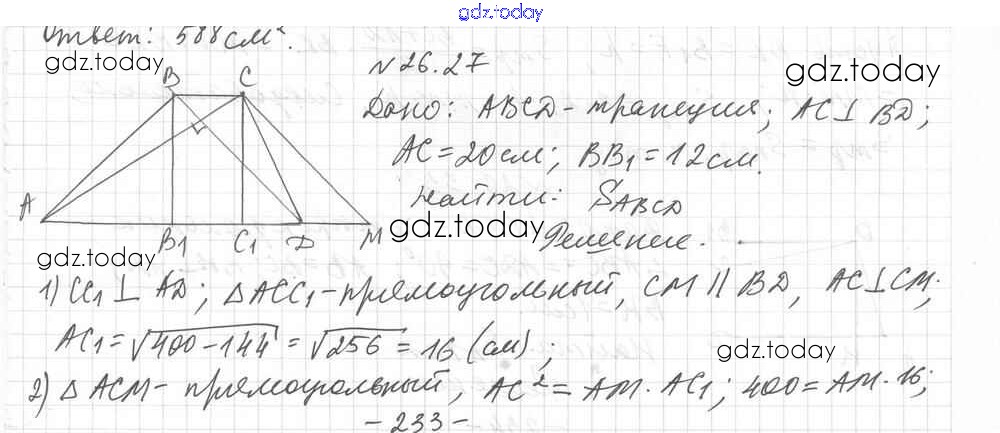 gdz.today
Ответ: 588 см².
gdz.today
N 26.27
gdz.today
B C
Дано: ABCD - трапеция; AC ⊥ BD;
AC = 20 см; BB₁ = 12 см.
Найти: S_ABCD
A
B₁ C₁ D M
gdz.today
Решение.
gdz.today
1) CC₁ ⊥ AD; △ACC₁ - прямоугольный, CM || BD, AC ⊥ CM;
AC₁ = √400-144 = √256 = 16 (см);
gdz.today
2) △ ACM - прямоугольный, AC² = AM · AC₁; 400 = AM · 16;
- 233 -